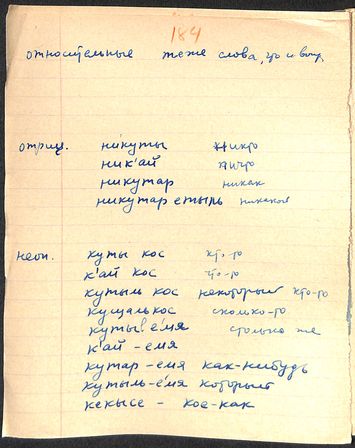 184
относительные те же слова, что и вопр.
отриц. никуты никто
ник'ай ничто
никутар никак
никутар етыль никакой
неоп. куты кос кто-то
к'ай кос что-то
кутыль кос некоторый кто-то
кущалькос сколько-то
куты е'мя столько же
к'ай - емя
кутар - емя как-нибудь
кутыль - емя который
кекысе - кое-как